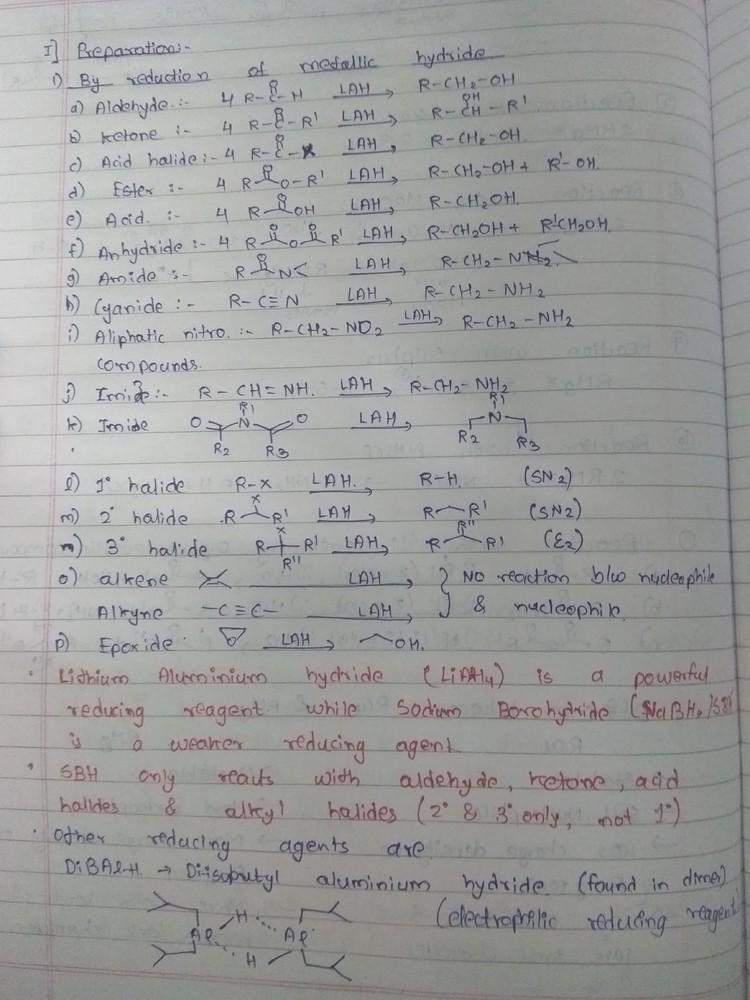 I] Preparation:-
1) By reduction of metallic hydride
a) Aldehyde :- 4 R-C(=O)-H LAH→ R-CH2-OH
b) ketone :- 4 R-C(=O)-R' LAH→ R-CH(OH)-R'
c) Acid halide :- 4 R-C(=O)-X LAH→ R-CH2-OH.
d) Ester :- 4 R-C(=O)-O-R' LAH→ R-CH2-OH + R'-OH.
e) Acid. :- 4 R-C(=O)-OH LAH→ R-CH2OH.
f) Anhydride :- 4 R-C(=O)-O-C(=O)-R' LAH→ R-CH2OH + R'CH2OH.
g) Amide :- R-C(=O)-N< LAH→ R-CH2-N<
h) Cyanide :- R-C≡N LAH→ R-CH2-NH2
i) Aliphatic nitro. :- R-CH2-NO2 LAH→ R-CH2-NH2
compounds.
j) :- R-CH=NH. LAH→ R-CH2-NH2
k) Imide O N R1 O R2 R3 LAH→ R1 N R2 R3
l) 1° halide R-X LAH.→ R-H. (SN2)
m) 2° halide R X R' LAH→ R R' (SN2)
n) 3° halide R X R' R" LAH→ R R" R' (E2)
o) alkene LAH→ } No reaction b/w nucleophile
Alkyne -C≡C- LAH→ & nucleophile.
p) Epoxide. O LAH→ OH.
· Lithium Aluminium hydride (LiAlH4) is a powerful
reducing reagent while Sodium Borohydride (NaBH4/SBH)
is a weaker reducing agent
· SBH only reacts with aldehyde, ketone, acid
halides & alkyl halides (2° & 3° only, not 1°)
· Other reducing agents are
DiBAl-H. → Di-isobutyl aluminium hydride (found in dimer)
(electrophilic reducing reagent
Al H Al H